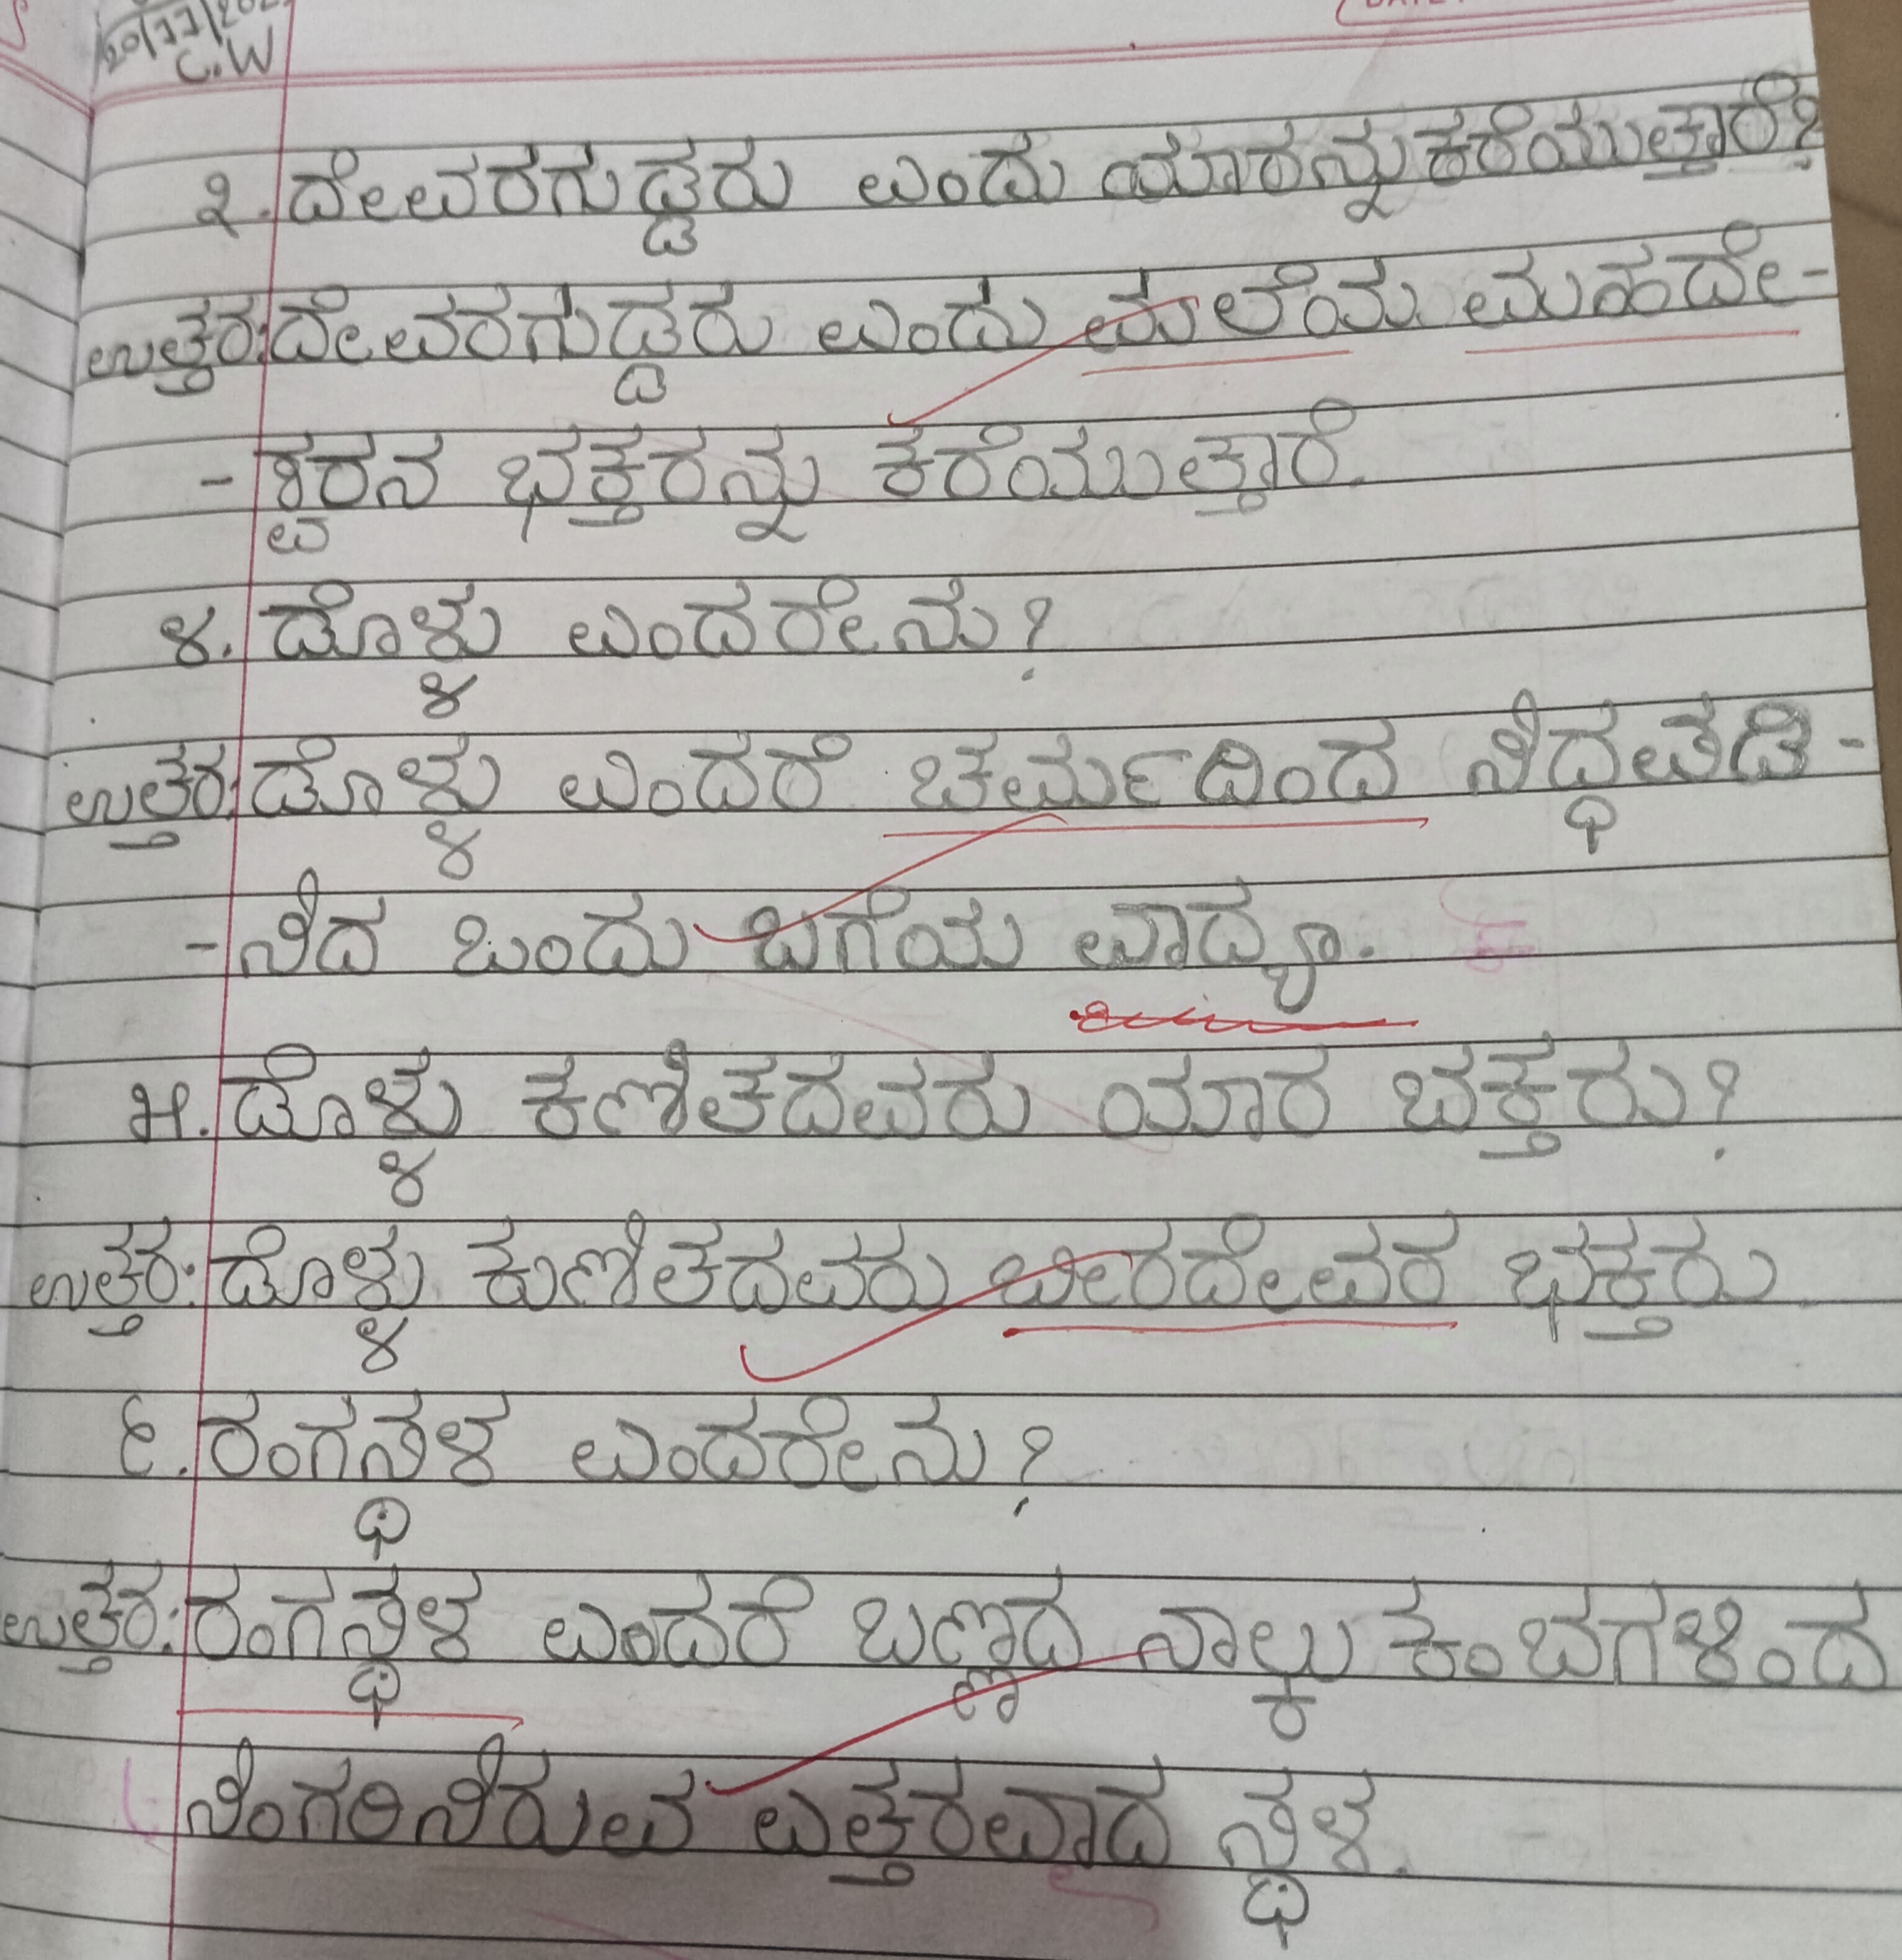 C.W
೨. ದೇವರಗುಡ್ಡರು ಎಂದು ಯಾರನ್ನು ಕರೆಯುತ್ತಾರೆ?
ಉತ್ತರ: ದೇವರಗುಡ್ಡರು ಎಂದು ಮಲೆಯ ಮಹದೇ-
- ಶ್ವರನ ಭಕ್ತರನ್ನು ಕರೆಯುತ್ತಾರೆ.
೪. ಡೊಳ್ಳು ಎಂದರೇನು?
ಉತ್ತರ: ಡೊಳ್ಳು ಎಂದರೆ ಚರ್ಮದಿಂದ ಸಿದ್ಧಪಡಿ-
- ಸಿದ ಒಂದು ಬಗೆಯ ವಾದ್ಯಾ.
೫. ಡೊಳ್ಳು ಕಣಿತದವರು ಯಾರ ಭಕ್ತರು?
ಉತ್ತರ: ಡೊಳ್ಳು ಕುಣಿತದವರು ಬೀರದೇವರ ಭಕ್ತರು
೬. ರಂಗಸ್ಥಳ ಎಂದರೇನು?
ಉತ್ತರ: ರಂಗಸ್ಥಳ ಎಂದರೆ ಬಣ್ಣದ ನಾಲ್ಕು ಕಂಬಗಳಿಂದ
ಸಿಂಗರಿಸಿರುವ ಎತ್ತರವಾದ ಸ್ಥಳ.